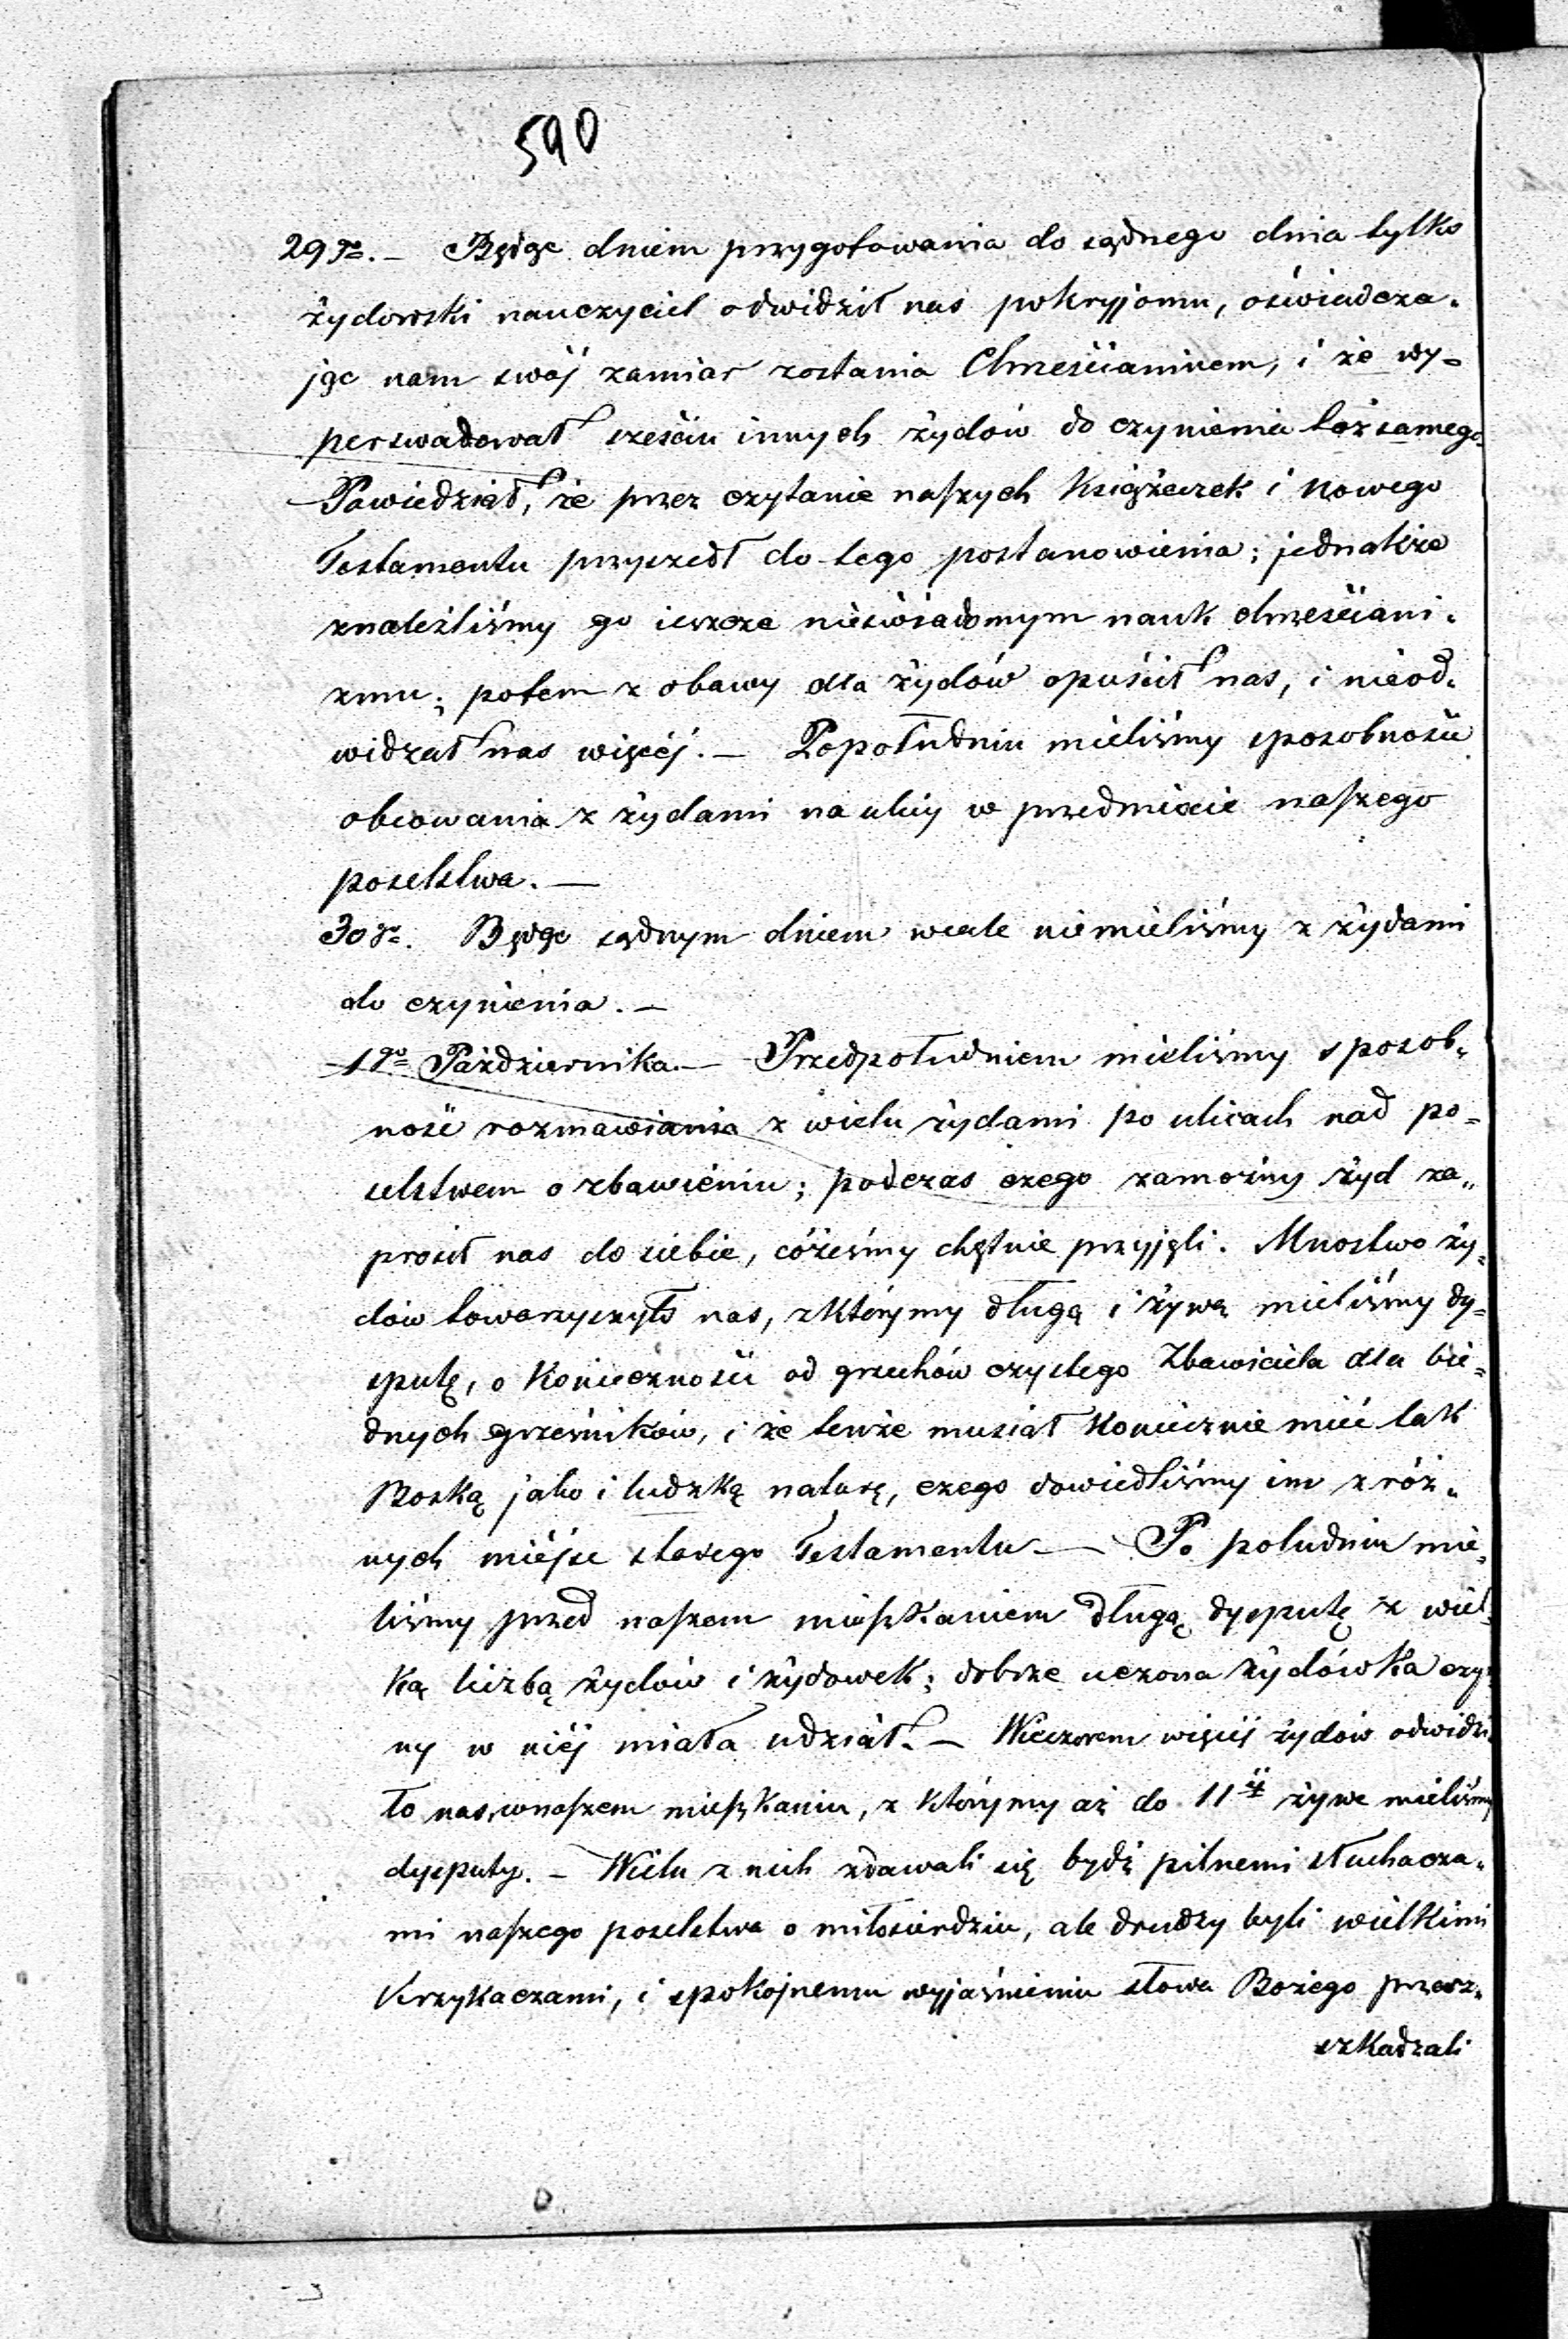 590
29go. — Będąc dniem przygotowania do sądnego dnia tylko
żydowski nauczyciel odwidził nas pokryjomu, oświadcza-
jąc nam swój zamiar zostania Chrześcianinem, i że wy-
perswadował sześciu innych żydów do czynienia tożsamego.
Powiedział, że przez czytanie naszych Książeczek i Nowego
Testamentu przyszedł do tego postanowienia; jednakże
znaleźliśmy go ieszcze nieświadomym nauk chrześciani-
zmu; potem z obawy dla żydów opuścił nas, i nieod-
widzał nas więcéj. — Popołudniu mieliśmy sposobność
obcowania z żydami na ulicy w przedmiocie naszego
poselstwa. —
30go. Będąc sądnym dniem wcale niemieliśmy z żydami
do czynienia. —
1go Października. — Przedpołudniem mieliśmy sposob-
ność rozmawiania z wielu żydami po ulicach nad po-
selstwem o zbawieniu; podczas czego zamożny żyd za-
prosił nas do siebie, cóżeśmy chętnie przyjęli. Mnostwo ży-
dów towarzyszyło nas, z którymy długą i żywą mieliśmy dy-
sputę, o Konieczności od grzechów czystego Zbawiciela dla bie-
dnych grzesników, i że tenże musiał Koniecznie mieć tak
Boską jako i ludzką naturę, czego dowiedliśmy im z róż-
nych miéjsc starego Testamentu — Po południu mie-
liśmy przed naszem mieszkaniem długą dysputę z wiel-
ką liczbą żydów i żydowek; dobrze uczona żydówka czy-
ny w niéj miała udział. — Wieczorem więcéj żydów odwidzi-
ło nas, wnaszem mieszkaniu, z którymy aż do 11éj żywe mieliśmy
dysputy. — Wielu z nich zdawali się bydź pilnemi słuchacza-
mi naszego poselstwa o miłosierdziu, ale drudzy byli wielkimi
Krzykaczami, i spokojnemu wyjaśnieniu słowa Bożego przesz-
szkadzali